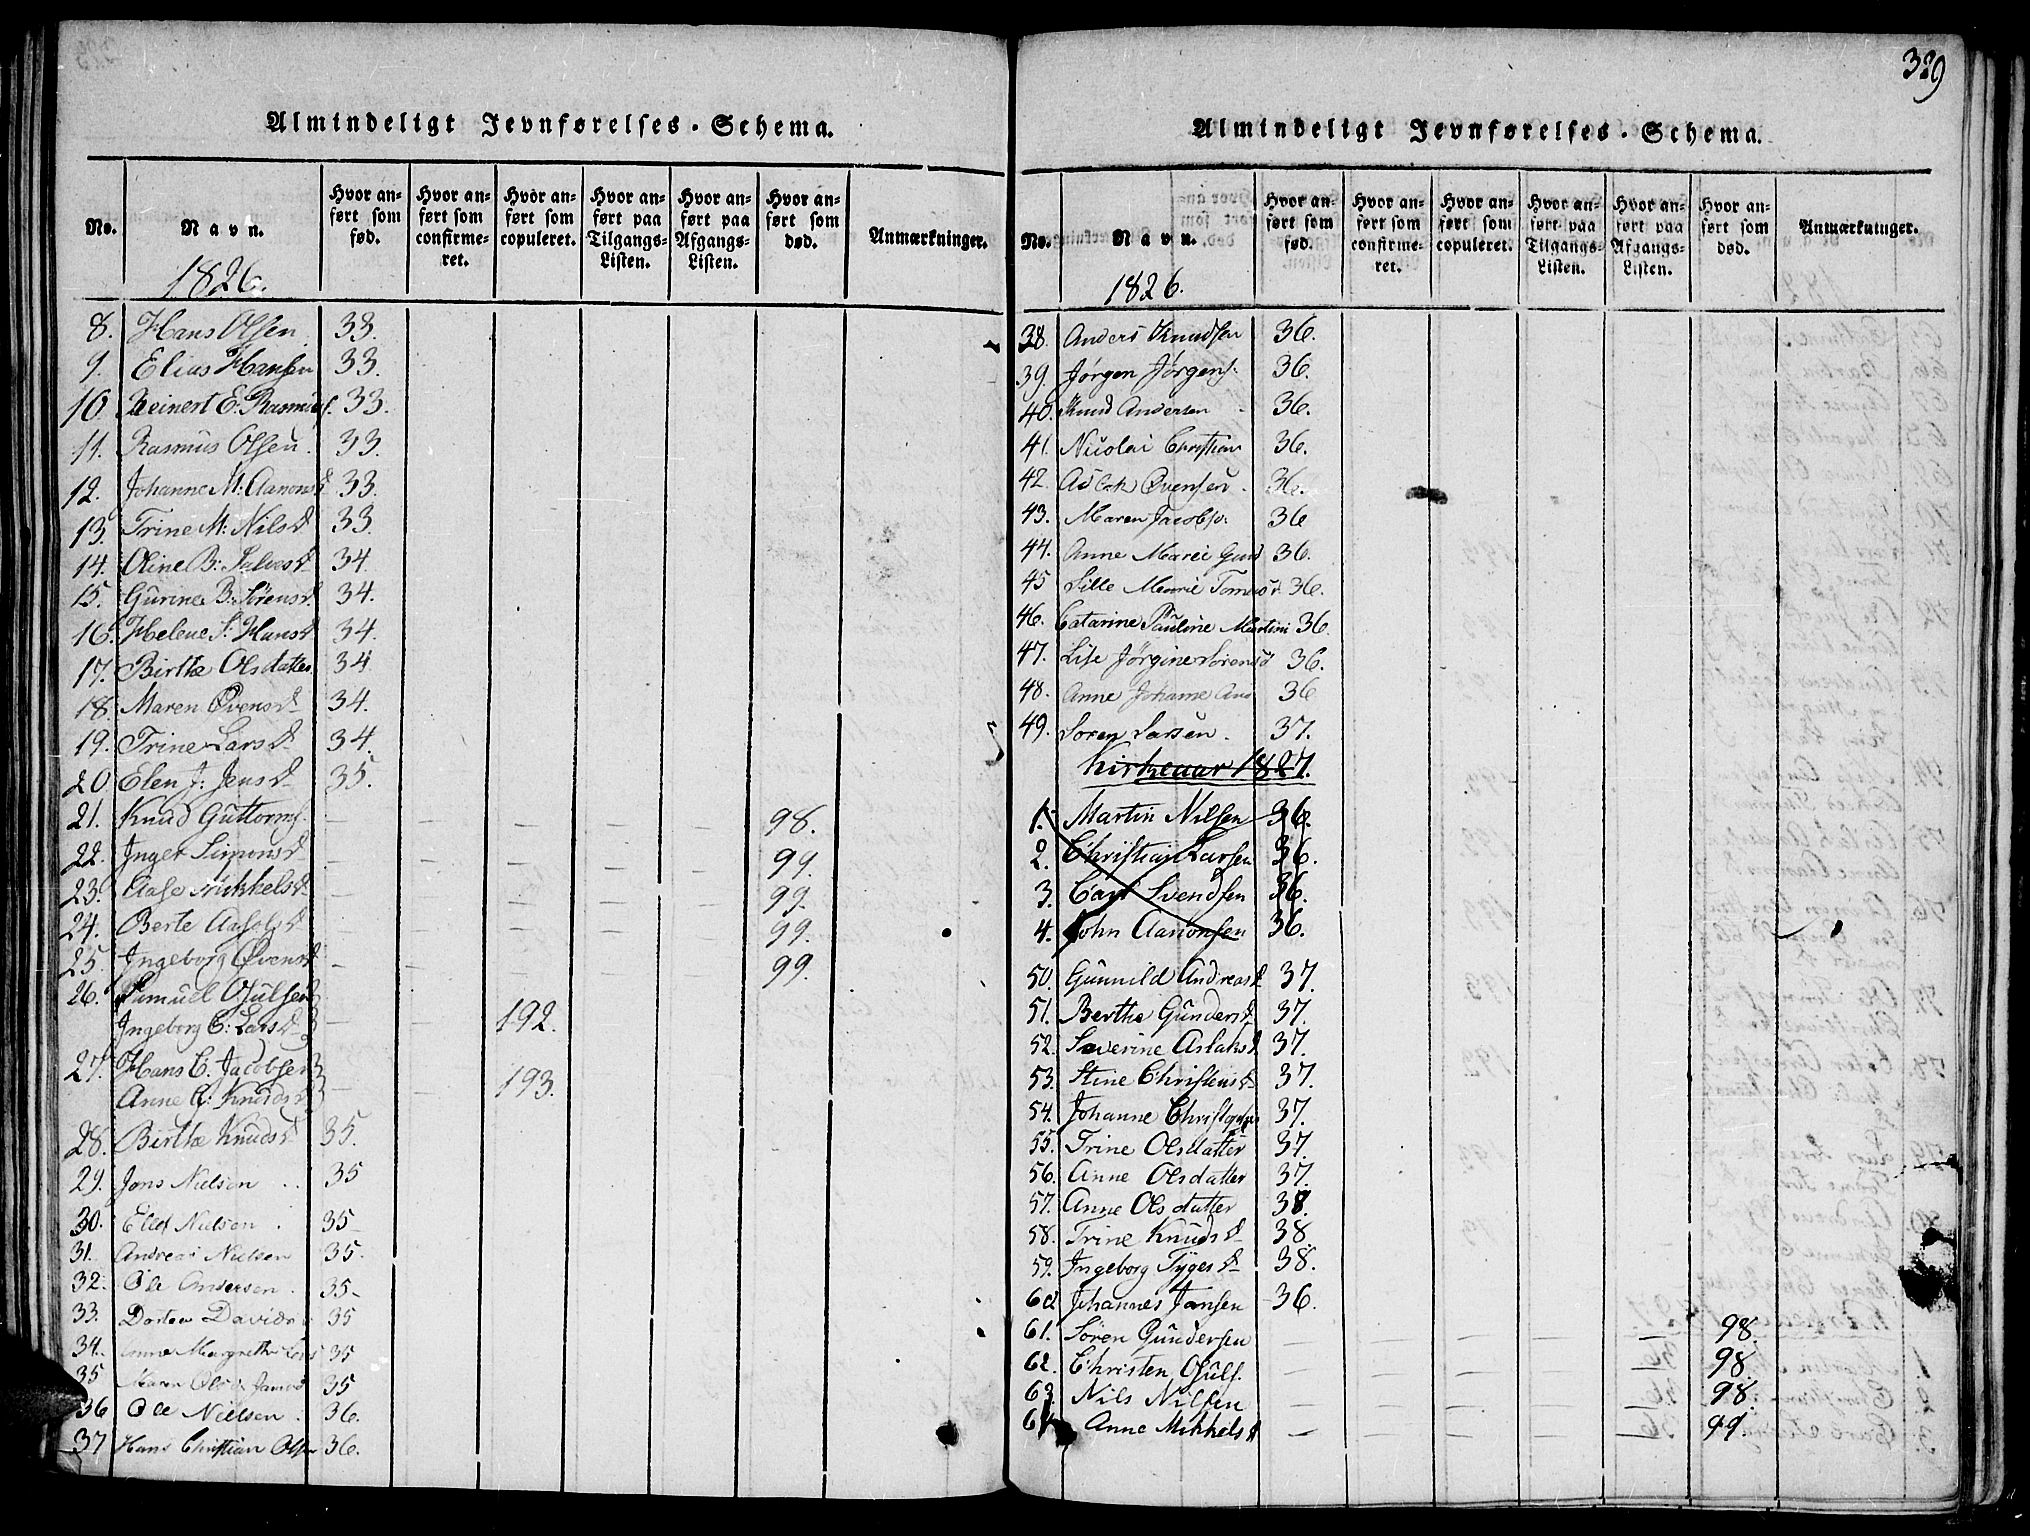 Almindeligt Jevnførelses-Schema.
No. Navn. Hvor anført som fød. Hvor anført som confirmeret. Hvor anført som copuleret. Hvor anført paa Tilgangs-Listen. Hvor anført paa Afgangs-Listen. Hvor anført som død. Anmærkninger.
1826.
8. Hans Olsen 33.
9. Elias Hansen 33.
10 Reinert E: Rasmus. 33.
11. Rasmus Olsen. 33.
12. Johanne M: Aanons d 33.
13. Trine M: Nilsd 33.
14. Oline B: Salvesd 34.
15. Gurine B: Sørensd. 34.
16. Helene S: Hansd 34.
17. Birthe Olsdatter 34
18. Maren Øvensd 34.
19. Trine Larsd 34.
20 Elen J: Jensd 35.
21. Knud Guttorms. — — — — — 98.
22. Inger Simonsd — — — — — 99.
23. Aase Mikkelsd — — — — — 99.
24. Berte Aasolsd — — — — — 99.
25. Ingeborg Øvensd — — — — — 99.
26. Samuel Osulsen
Ingeborg C: Larsd — — 192.
27. Hans C. Jacobsen
Anne C: Knudsd — — 193.
28. Birthe Knudsd 35.
29. Jens Nielsen 35
30. Ellef Nielsen 35
31. Andreas Nielsen 35.
32. Ole Andersen 35
33. Dorten Davids 35
34. Anne Margrethe Lars 35
35 Maren Ols 35
36 Ole Nielsen 36.
37 Hans Christian Olsen 36.
329
Almindeligt Jevnførelses-Schema.
No. Navn. Hvor anført som fød. Hvor anført som confirmeret. Hvor anført som copuleret. Hvor anført paa Tilgangs-Listen. Hvor anført paa Afgangs-Listen. Hvor anført som død. Anmærkninger.
1826.
38. Anders Knudsen 36.
39. Jørgen Jørgens. 36.
40. Knud Andersen 36.
41. Nicolai Christian 36.
42. Aslak Øvensen 36.
43. Maren Jacobs 36
44. Anne Marie Gund 36.
45 Sille Marie Tomesd 36.
46. Catarine Pauline Martini 36.
47. Lise Jörgine Sorensd 36.
48. Anne Johanne 36
49. Soren Larsen. 37.
Kirkeaar 1827.
1. Martin Nilsen 36.
2. Christian Larsen 36.
3. Carl Svendsen 36.
4. John Aanonsen 36.
50. Gunnild Andreasd 37.
51. Berthe Gundersd 37.
52. Severine Aslaksd 37.
53. Stine Christensd 37.
54. Johanne Christophers 37.
55. Trine Olsdatter 37.
56. Anne Olsdatter 37.
57. Anne Olsdatter 38.
58. Trine Knudsd 38
59. Ingeborg Tygesd 38.
60 Johannes Jansen 36.
61. Sören Gundersen — — — — — 98.
62. Christen Osuls. — — — — — 98.
63 Nils Nilsen — — — — — 98.
64 Anne Mikkelsd — — — — — 99.